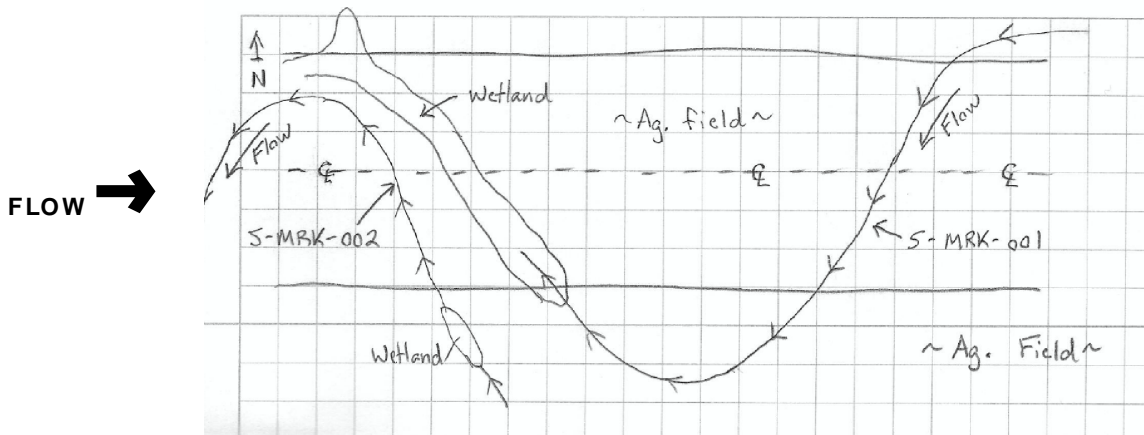 N
Wetland
~Ag. field~
Flow
Flow
℄
℄
℄
FLOW
S-MRK-002
S-MRK-001
Wetland
~Ag. Field~